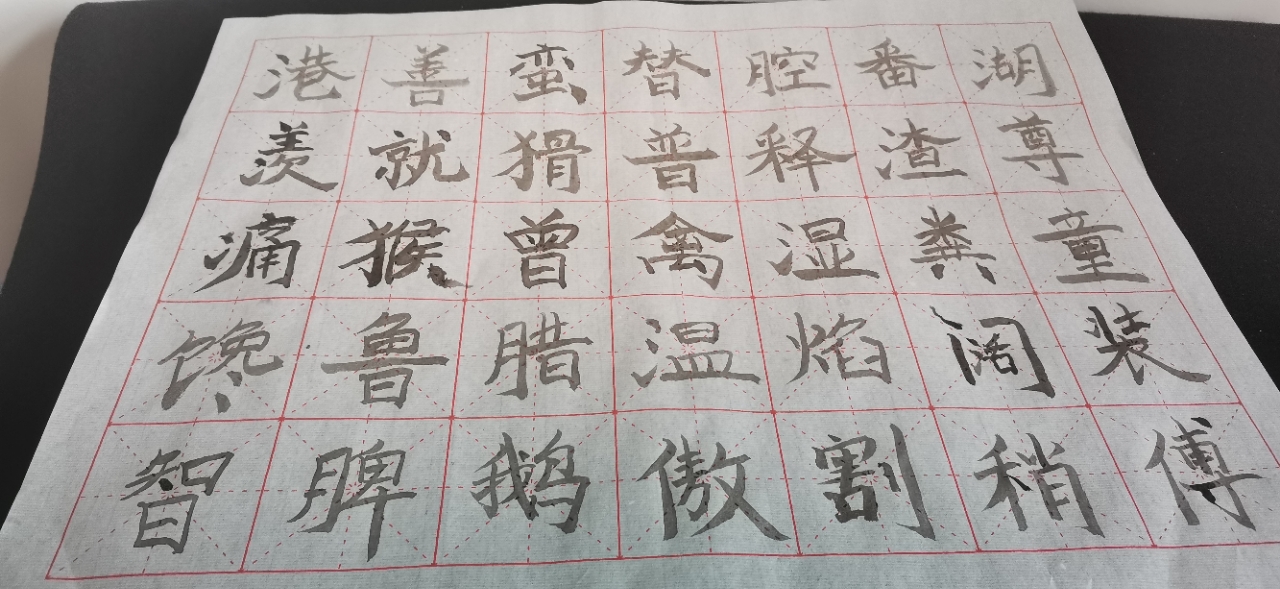 港善蛮替腔番湖
羡就猾普释渣尊
痛猴曾禽湿粪童
馋鲁腊温焰阔装
智脾鹅傲割稍傅